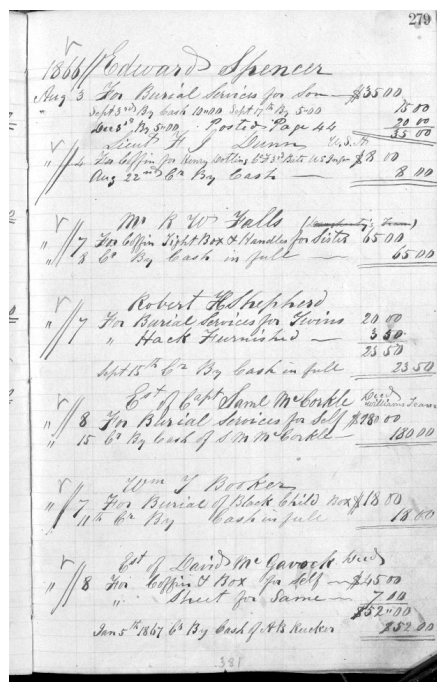 279
1866 // Edward Spencer
Aug 3 For Burial Services for Son — $35 00
Sept 3rd By Cash 10=00 Sept 17th By 5=00 15 00
Dec 3rd By 5=00 Posted Page 44 20 00
35 00
Lieut H J Dunn U.S.A
" // 4 For Coffin for Henry Co F 3rd US $8 00
Aug 22nd Cr By Cash — 8 00
Mr R W Falls
" // 7 For Coffin Tight Box & Handles for Sister 65 00
" 8 Cr By Cash in full — 65 00
Robert H Shepherd
" // 7 For Burial Services for Twins 20 00
" Hack Furnished — 3 50
23 50
Sept 15th Cr By Cash in full 23 50
Est of Capt Saml McCorkle Decd
" // 8 For Burial Services for Self $180 00
" 15 Cr By Cash of S M McCorkle — 180 00
Wm T Booker
" // 7 For Burial of Black Child Box $18 00
" 11th Cr By Cash in full 18 00
Est of David McGavock Decd
" // 8 For Coffin & Box for Self — $45 00
" Sheet for Same — 7 00
$52=00
Jan 5th 1867 Cr By Cash of A B Rucker $52 00
381